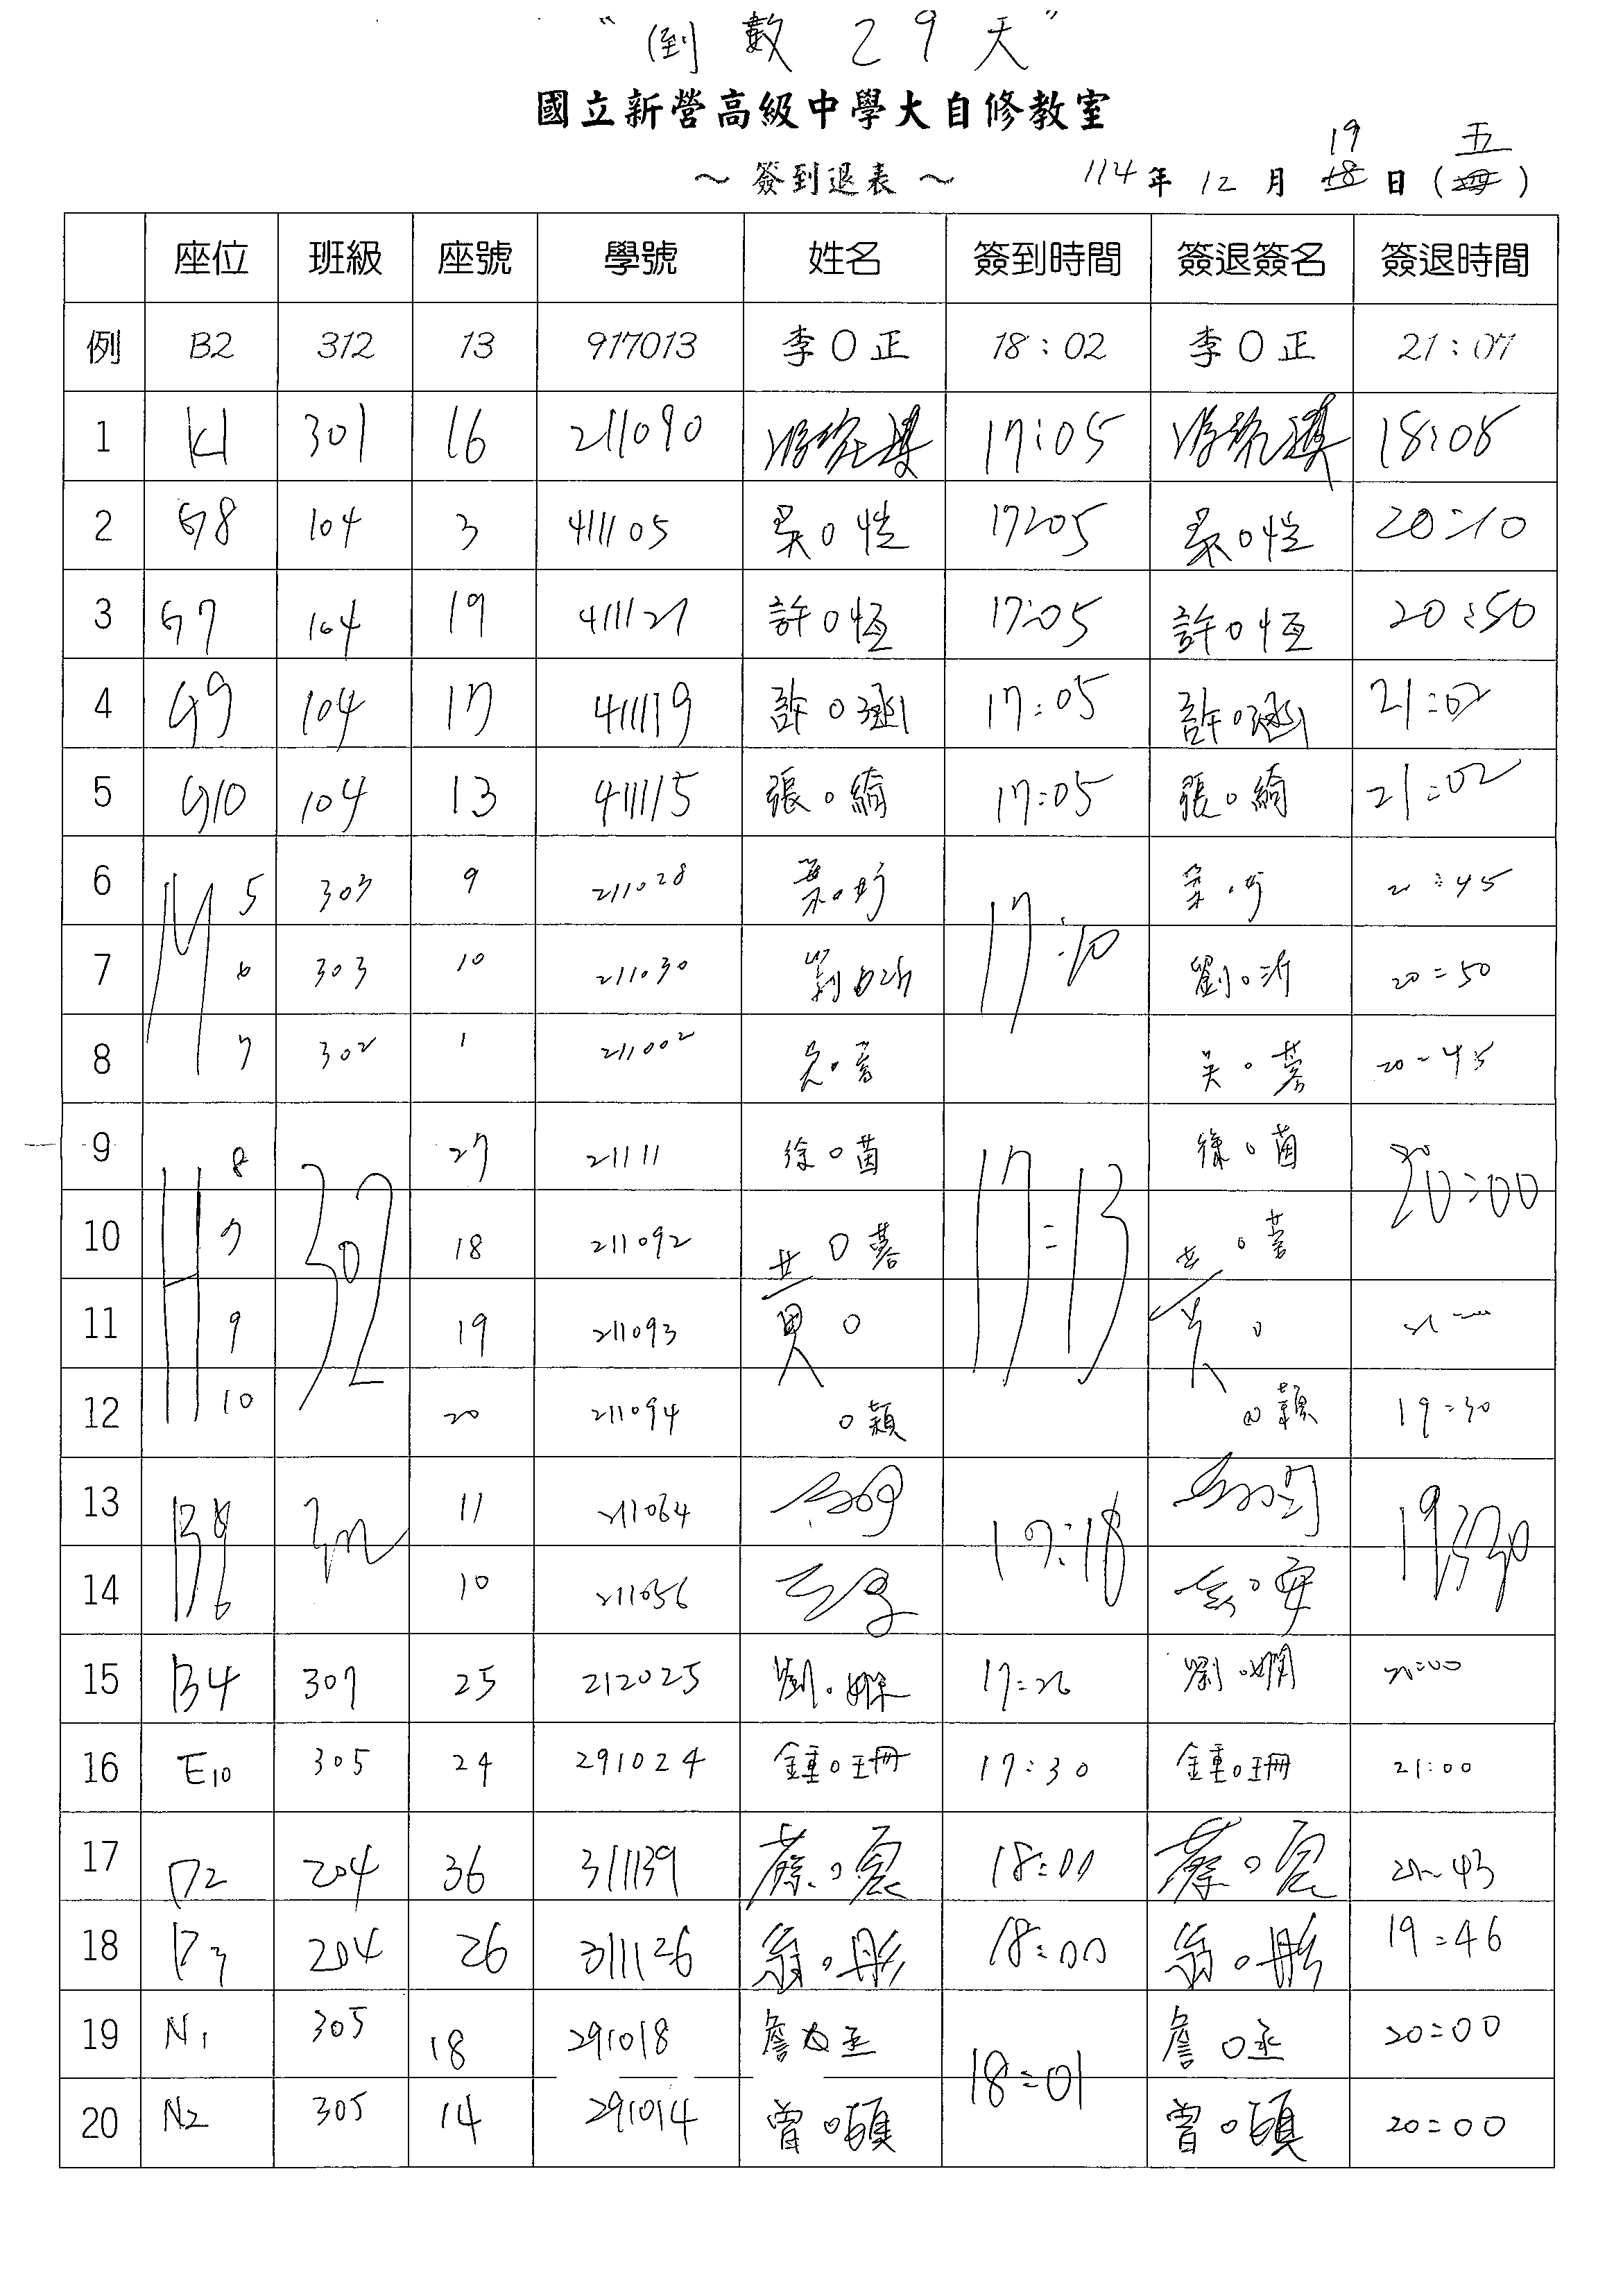 “倒數 29天”
國立新營高級中學大自修教室
～簽到退表～ 114年12月19日(五)
座位 班級 座號 學號 姓名 簽到時間 簽退簽名 簽退時間
例 B2 312 13 917013 李O正 18:02 李O正 21:07
1 K1 301 16 211090 17:05 18:08
2 G8 104 3 411105 吳O愷 17:05 吳O愷 20:10
3 G7 104 19 411121 許O恆 17:05 許O恆 20:50
4 G9 104 17 411119 許O涵 17:05 許O涵 21:02
5 G10 104 13 411115 張O綺 17:05 張O綺 21:02
6 M5 303 9 211028 17:10 20:45
7 6 303 10 211030 劉O沂 劉O沂 20=50
8 7 302 1 211002 吳O蓁 20~45
9 H8 302 27 21111 徐O茵 17=13 徐O茵 20:00
10 7 18 211092 O蓉 O蓉
11 9 19 211093 黃O 黃O
12 10 20 211094 O穎 O穎 19=30
13 B8 11 211064 17:18 19:30
14 6 10 211056
15 B4 307 25 212025 劉O嫻 17=26 劉O嫻
16 E10 305 24 291024 鍾O珊 17:30 鍾O珊 21:00
17 D2 204 36 311139 蔡O宸 18:00 蔡O宸
18 D3 204 26 311126 翁O彤 18:00 翁O彤 19=46
19 N1 305 18 291018 詹O丞 18=01 詹O丞 20=00
20 N2 305 14 291014 曾O頤 曾O頤 20=00